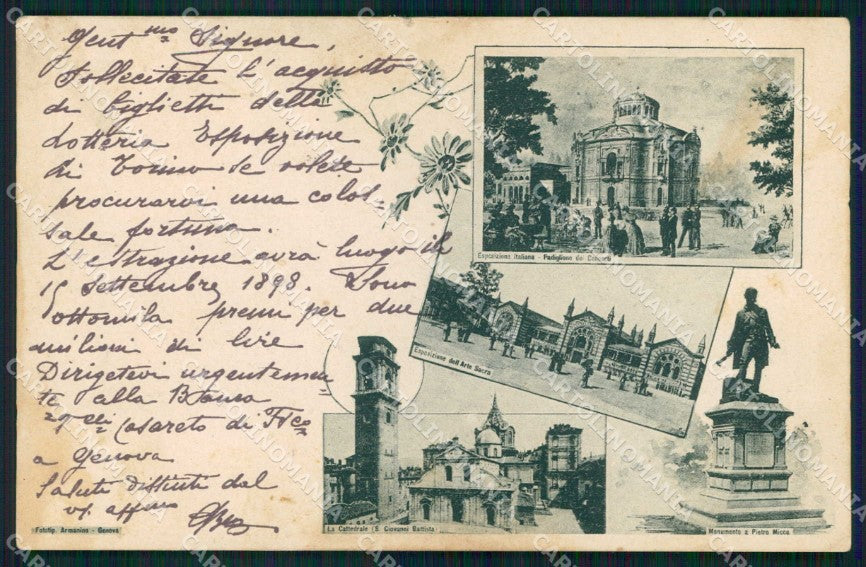 Gent.mo Signore,
Sollecitate l'acquisto
di biglietti della
Lotteria Esposizione
di Torino se volete
procurarvi una colos-
sale fortuna.
L'estrazione avrà luogo il
15 Settembre 1898. Sono
ottomila premi per due
milioni di lire
Dirigetevi urgentemen
te alla Banca
Casareto di F.sco
a Genova
Saluti distinti dal
vs. aff.mo
Fototip. Armanino - Genova
Esposizione Italiana - Padiglione dei Concerti
Esposizione dell'Arte Sacra
La Cattedrale (S. Giovanni Battista)
Monumento a Pietro Micca
CARTOLINOMANIA